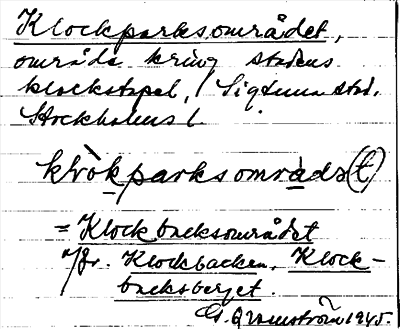 Klockparksområdet,
område kring stadens
klockstapel, Sigtuna stad,
Stockholms l.
klòkparksområdə(t)
= Klockbacksområdet
Jfr. Klockbacken, Klock-
backsberget.
G. Granström 1945.